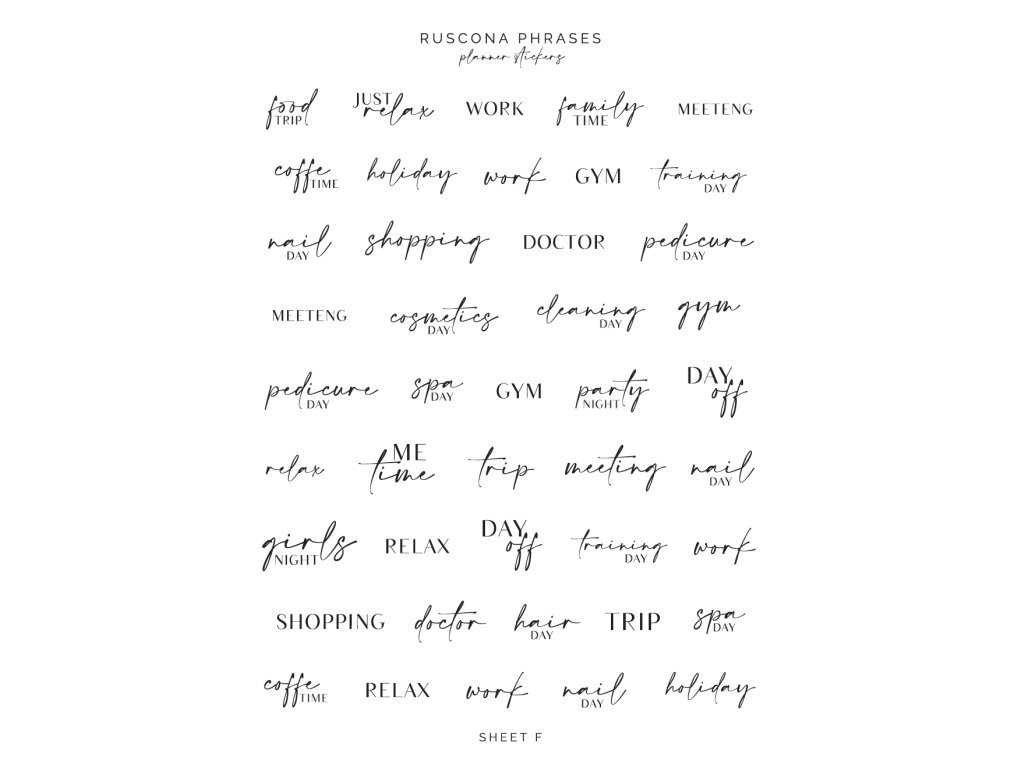 RUSCONA PHRASES
planner stickers
food TRIP JUST relax WORK family TIME MEETENG
coffe TIME holiday work GYM training DAY
nail DAY shopping DOCTOR pedicure DAY
MEETENG cosmetics DAY cleaning DAY gym
pedicure DAY spa DAY GYM party NIGHT DAY off
relax ME time trip meeting nail DAY
girls NIGHT RELAX DAY off training DAY work
SHOPPING doctor hair DAY TRIP spa DAY
coffe TIME RELAX work nail DAY holiday
SHEET F